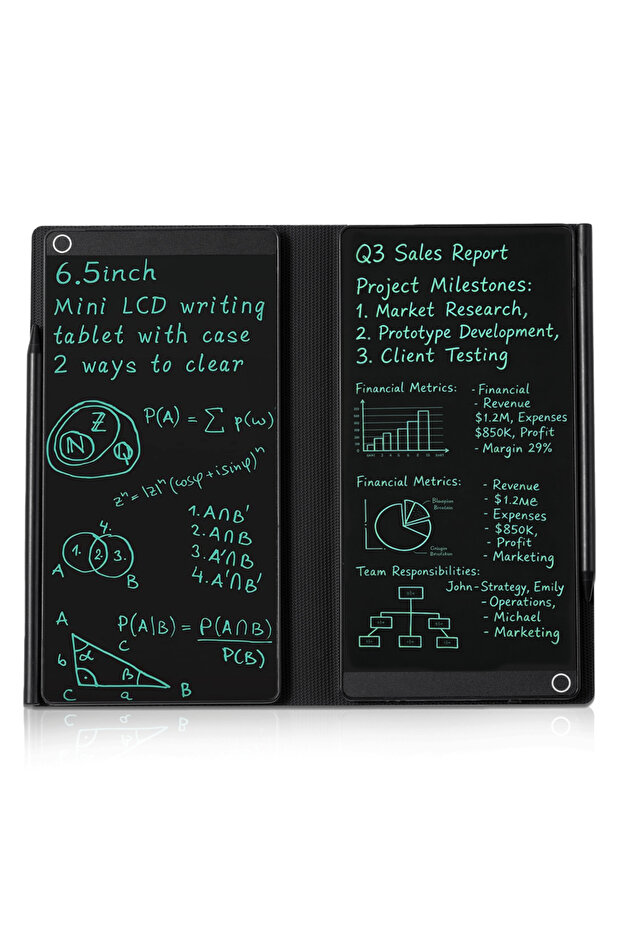 6.5inch
Mini LCD writing
tablet with case
2 ways to clear
Z
N
Q
P(A) = ∑ p(w)
zⁿ = |z|ⁿ (cosφ + i sinφ)ⁿ
4.
1. 2. 3.
A
B
1. A∩B'
2. A∩B
3. A'∩B
4. A'∩B'
P(A|B) = P(A∩B)
P(B)
A
b α c
β
C a B
Q3 Sales Report
Project Milestones:
1. Market Research,
2. Prototype Development,
3. Client Testing
Financial Metrics:
- Financial
- Revenue
$1.2M, Expenses
$850K, Profit
- Margin 29%
Financial Metrics:
- Revenue
- $1.2ME
- Expenses
- $850K,
- Profit
- Marketing
Team Responsibilities:
John-Strategy, Emily
- Operations,
- Michael
- Marketing